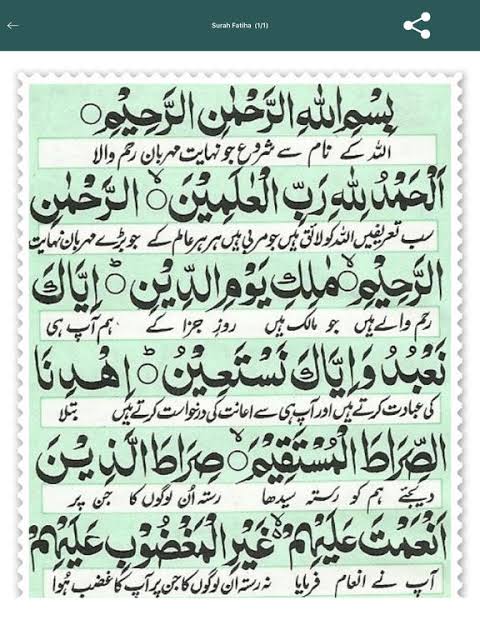 Surah Fatiha (1/1)
بِسْمِ اللهِ الرَّحْمٰنِ الرَّحِيْمِ ○
اللہ کے نام سے شروع جو نہایت مہربان رحم والا
اَلْحَمْدُ لِلّٰهِ رَبِّ الْعٰلَمِيْنَ ○ۙ الرَّحْمٰنِ
سب تعریفیں اللہ کو لائق ہیں جو مربی ہیں ہر ہر عالم کے جو بڑے مہربان نہایت
الرَّحِيْمِ ○ۙ مٰلِكِ يَوْمِ الدِّيْنِ ○ؕ اِيَّاكَ
رحم والے ہیں جو مالک ہیں روزِ جزا کے ہم آپ ہی
نَعْبُدُ وَ اِيَّاكَ نَسْتَعِيْنُ ○ؕ اِهْدِنَا
کی عبادت کرتے ہیں اور آپ ہی سے اعانت کی درخواست کرتے ہیں بتلا
الصِّرَاطَ الْمُسْتَقِيْمَ ○ۙ صِرَاطَ الَّذِيْنَ
دیجئے ہم کو رستہ سیدھا رستہ اُن لوگوں کا جن پر
اَنْعَمْتَ عَلَيْهِمْ ○ۙ غَيْرِ الْمَغْضُوْبِ عَلَيْهِمْ
آپ نے انعام فرمایا نہ رستہ ان لوگوں کا جن پر آپ کا غضب ہُوا